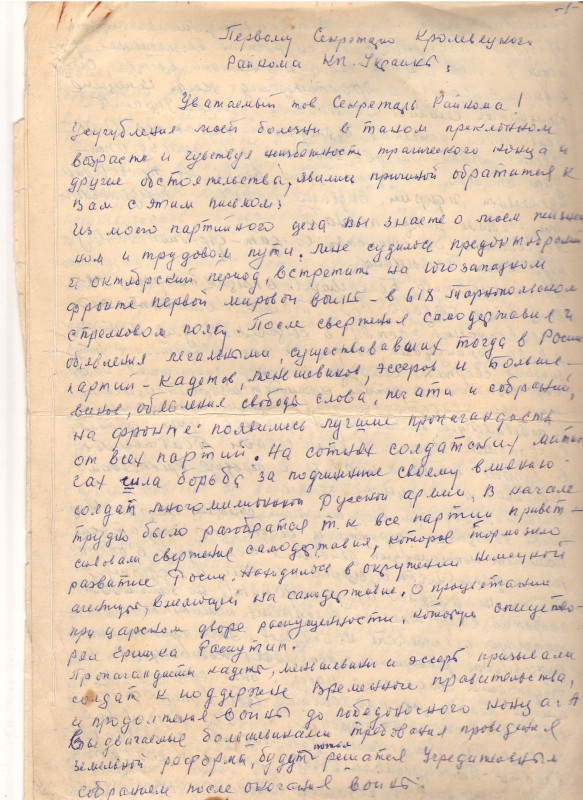 -1-
Первому Секретарю Кролевецкого
Райкома Кп. Украины.
Уважаемый тов Секретарь Райкома!
Усугубления моей болезни в таком преклонном
возрасте и чувствуя неизбежность трагического конца и
другие обстоятельства, явились причиной обратится к
Вам с этим письмом:
Из моего партийного дела вы знаете о моем жизнен
ном и трудовом пути. Мне судилось предоктябрьский
и октябрьский период, встретить на югозападном
фронте первой мировой войны – в 618 Тарнопольском
стрелковом полку. После свержения самодержавия и
объявления легальными, существовавших тогда в России
партий – Кадетов, меньшевиков, эссеров и Больше-
виков, объявления свободы слова, печати и собраний,
на фронте появились лучшие пропагандисты
от всех партий. На сотнях солдатских митин
гах шла борьба за подчинение своему влиянию
солдат многомилионной русской армии, В начале
трудно было разобратся т.к все партии привет-
ствовали свержение самодержавия, которое тормозило
развитие Росии. Находилося в окружении немецкой
агентуры, влияющей на самодержавие. О процветании
при царском дворе распущенности, которую олицетво-
рял Гришка Распутин.
Пропагандисты кадеты, меньшевики и эссеры призывали
солдат к поддержке Временного правительства,
и продолжения войны до победоносного конца. А
выдвигаемые большевиками требования проведения
земельной реформы, будут потом решатся Учредительным
собранием после окончания войны.